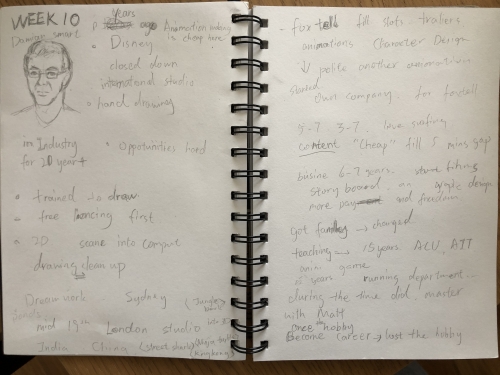 WEEK 10
years
ago Animation making
is cheap here
Damian smart
Disney
closed down
international studio
hand drawing
in Industry
for 20 year +
Oppotunities hard
trained to draw
free lencing first
2D scane into comput
drawing clean up
Dream work Sydney (Jungle book)
mid 19th London studio
India China (street sharks)
for fill slots. trailers
animations Character Design
another animation
started
Own company. for foxtell
5-7 3-7. love surfing
content "Cheap" fill 5 mins gap
6-7 years. start
story board. graphic design
more pay and freedom
Got family → changed
teaching → 15 years. ACU, AIT
anim. game
years running department
during the time did master
with Matt
Once hobby
Become career → lost the hobby